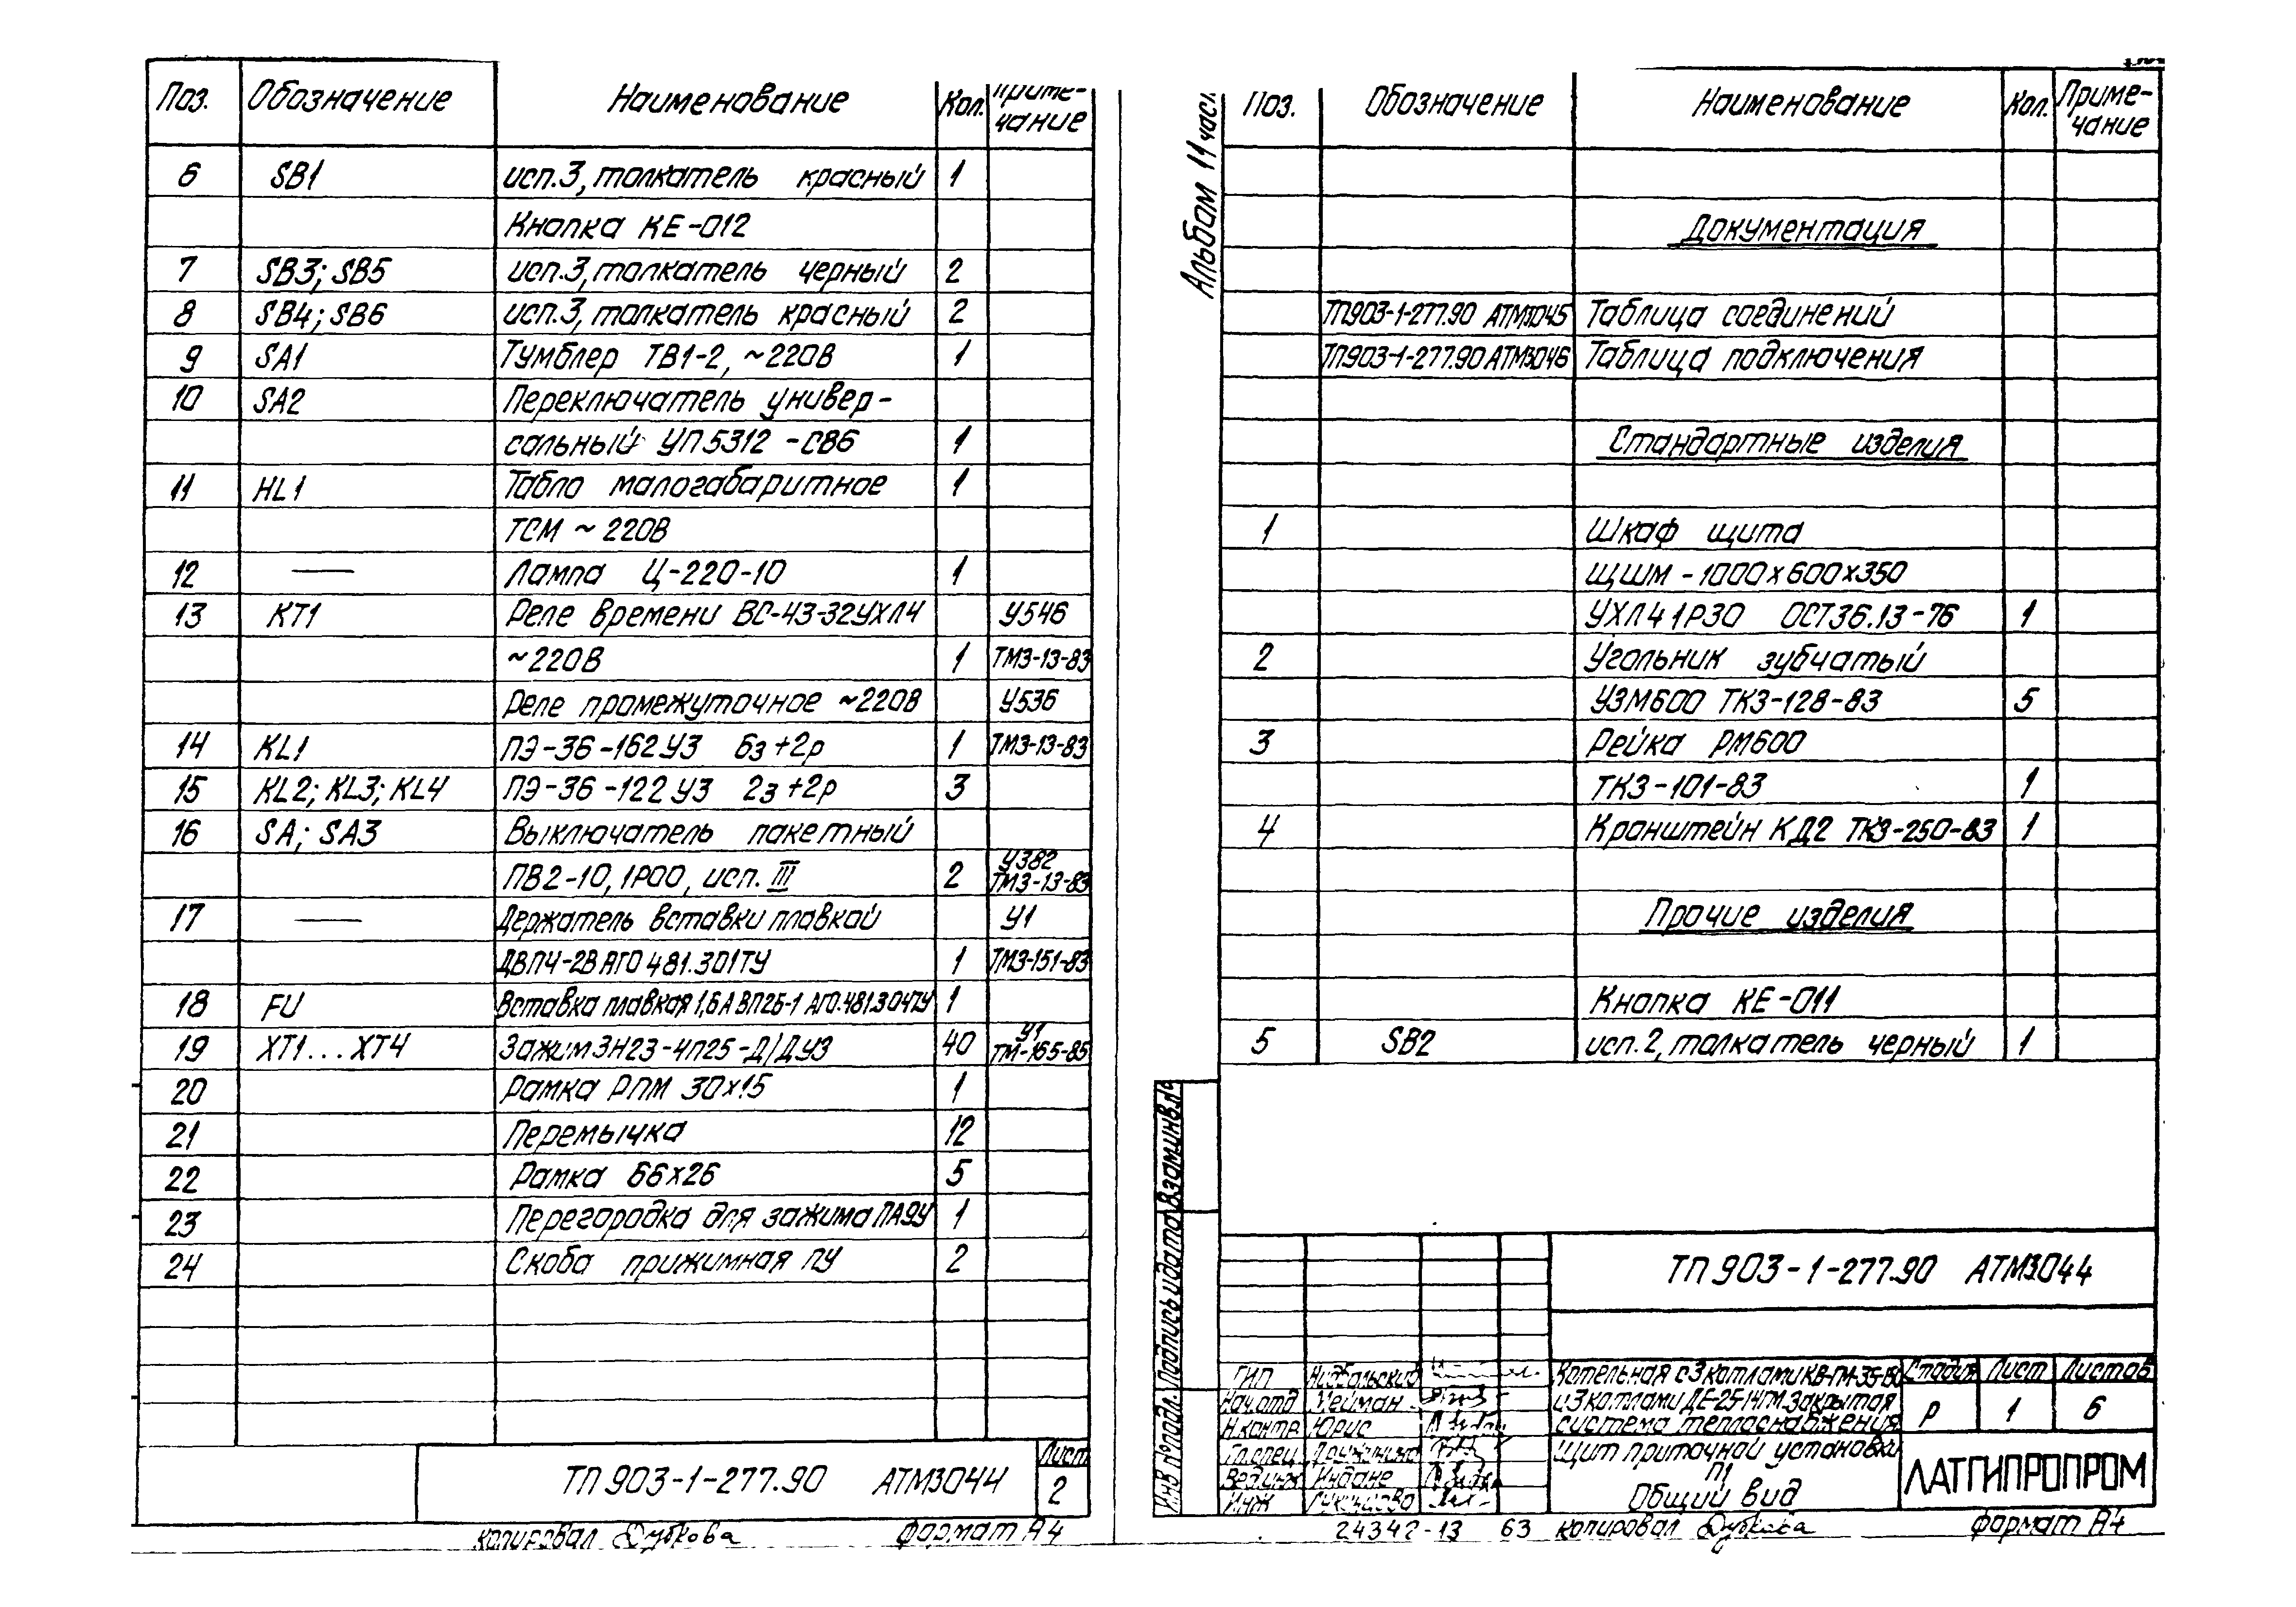 Поз. Обозначение Наименование Кол. Приме-
чание
6 SB1 исп.3, толкатель красный 1
Кнопка КЕ-012
7 SB3; SB5 исп.3, толкатель черный 2
8 SB4; SB6 исп.3, толкатель красный 2
9 SA1 Тумблер ТВ1-2, ~220В 1
10 SA2 Переключатель универ-
сальный УП5312-С86 1
11 HL1 Табло малогабаритное 1
ТСМ ~ 220В
12 — Лампа Ц-220-10 1
13 КТ1 Реле времени ВС-43-32УХЛ4 У546
~220В 1 ТМ3-13-83
Реле промежуточное ~220В У536
14 KL1 ПЭ-36-162У3 6з+2р 1 ТМ3-13-83
15 KL2; KL3; KL4 ПЭ-36-122У3 2з+2р 3
16 SA; SA3 Выключатель пакетный
ПВ2-10, 1Р00, исп. III 2 У382
ТМ3-13-83
17 — Держатель вставки плавкой У1
ДВП4-2В АГ0 481.301ТУ 1 ТМ3-151-83
18 FU Вставка плавкая 1,6А ВП2Б-1 АГ0.481.304ТУ 1
19 ХТ1...ХТ4 Зажим ЗН23-4П25-Д/ДУ3 40 У1
ТМ-165-85
20 Рамка РПМ 30х15 1
21 Перемычка 12
22 Рамка 66х26 5
23 Перегородка для зажима ПА9У 1
24 Скоба прижимная ПУ 2
ТП 903-1-277.90 АТМ3044
Лист
2
копировал Дубкова формат А4
Альбом 11 част
Поз. Обозначение Наименование Кол. Приме-
чание
Документация
ТП903-1-277.90 АТМ3045 Таблица соединений
ТП903-1-277.90 АТМ3046 Таблица подключения
Стандартные изделия
1 Шкаф щита
ЩШМ-1000х600х350
УХЛ4 1Р30 ОСТ36.13-76 1
2 Угольник зубчатый
УЗМ600 ТК3-128-83 5
3 Рейка РМ600
ТК3-101-83 1
4 Кронштейн КД2 ТК3-250-83 1
Прочие изделия
Кнопка КЕ-011
5 SB2 исп.2, толкатель черный 1
Взам.инв.№
Подпись и дата
Инв № подл.
ТП 903-1-277.90 АТМ3044
ГИП
Нач.отд Мейман
Н.контр Юрис
Гл.спец
Вед.инж Индане
Инж
Котельная с 3 котлами КВ-ГМ-35-150
и 3 котлами ДЕ-25-14ГМ. Закрытая
система теплоснабжения
Стадия Лист Листов
Р 1 6
Щит приточной установки
П1
Общий вид
ЛАТГИПРОПРОМ
24342-13 63 копировал Дубкова формат А4